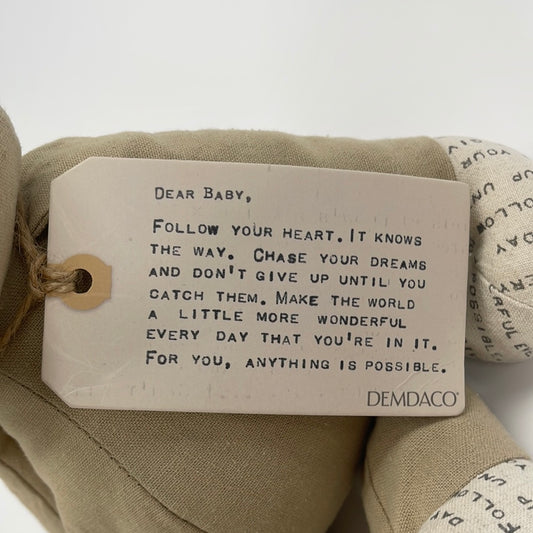 DEAR BABY,
FOLLOW YOUR HEART. IT KNOWS
THE WAY. CHASE YOUR DREAMS
AND DON'T GIVE UP UNTIL YOU
CATCH THEM. MAKE THE WORLD
A LITTLE MORE WONDERFUL
EVERY DAY THAT YOU'RE IN IT.
FOR YOU, ANYTHING IS POSSIBLE.
DEMDACO
YOUR
UP UN
FOLLOW
DAY
POSSIBLE
FOLLOW
DAY
UP UN